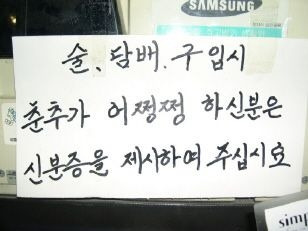 SAMSUNG
술, 담배, 구입시
춘추가 어쩡쩡 하신분은
신분증을 제시하여 주십시요
simp